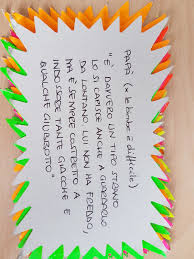 PAPÀ (e le bombe è difficile)
"È DAVVERO UN TIPO STRANO
LO SI CAPISCE ANCHE A GUARDARLO
DA LONTANO LUI NON HA FREDDO,
MA È SEMPRE COSTRETTO A
INDOSSARE TANTE GIACCHE E
QUALCHE GIUBBOTTO"